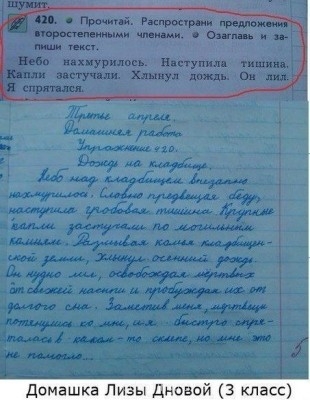 шумит.
420. • Прочитай. Распространи предложения
второстепенными членами. • Озаглавь и за-
пиши текст.
Небо нахмурилось. Наступила тишина.
Капли застучали. Хлынул дождь. Он лил.
Я спрятался.
Третье апреля.
Домашняя работа
Упражнение 420.
Дождь на кладбище.
Небо над кладбищем внезапно
нахмурилось. Словно предвещая беду,
наступила гробовая тишина. Крупные
капли застучали по могильным
камням. Размывая комья кладбищен-
ской земли, хлынул осенний дождь.
Он нудно лил, освобождая мертвых
от свежей насыпи и пробуждая их от
долгого сна. Заметив меня, мертвецы
потянулись ко мне, и я быстро спря-
талась в каком-то склепе, но мне это
не помогло...
5
Домашка Лизы Дновой (3 класс)